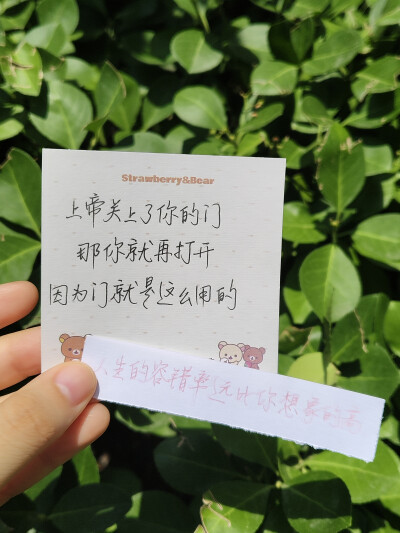 Strawberry&Bear
上帝关上了你的门
那你就再打开
因为门就是这么用的
人生的容错率远比你想象的高